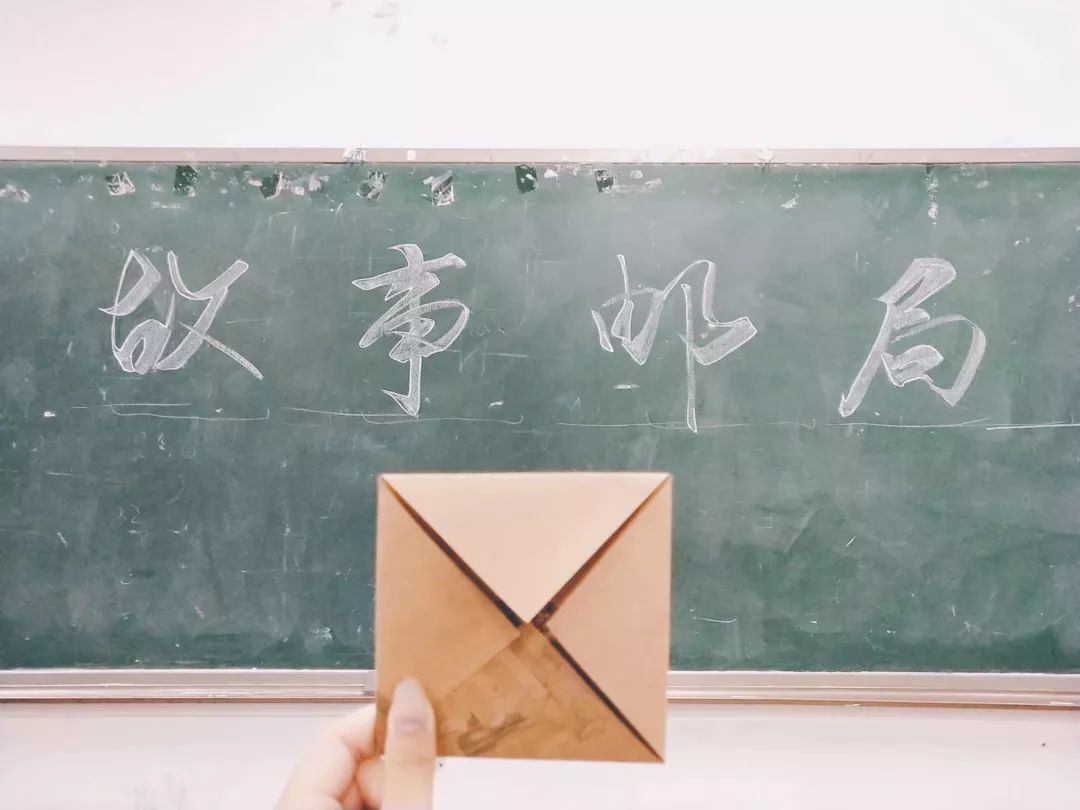 故事邮局